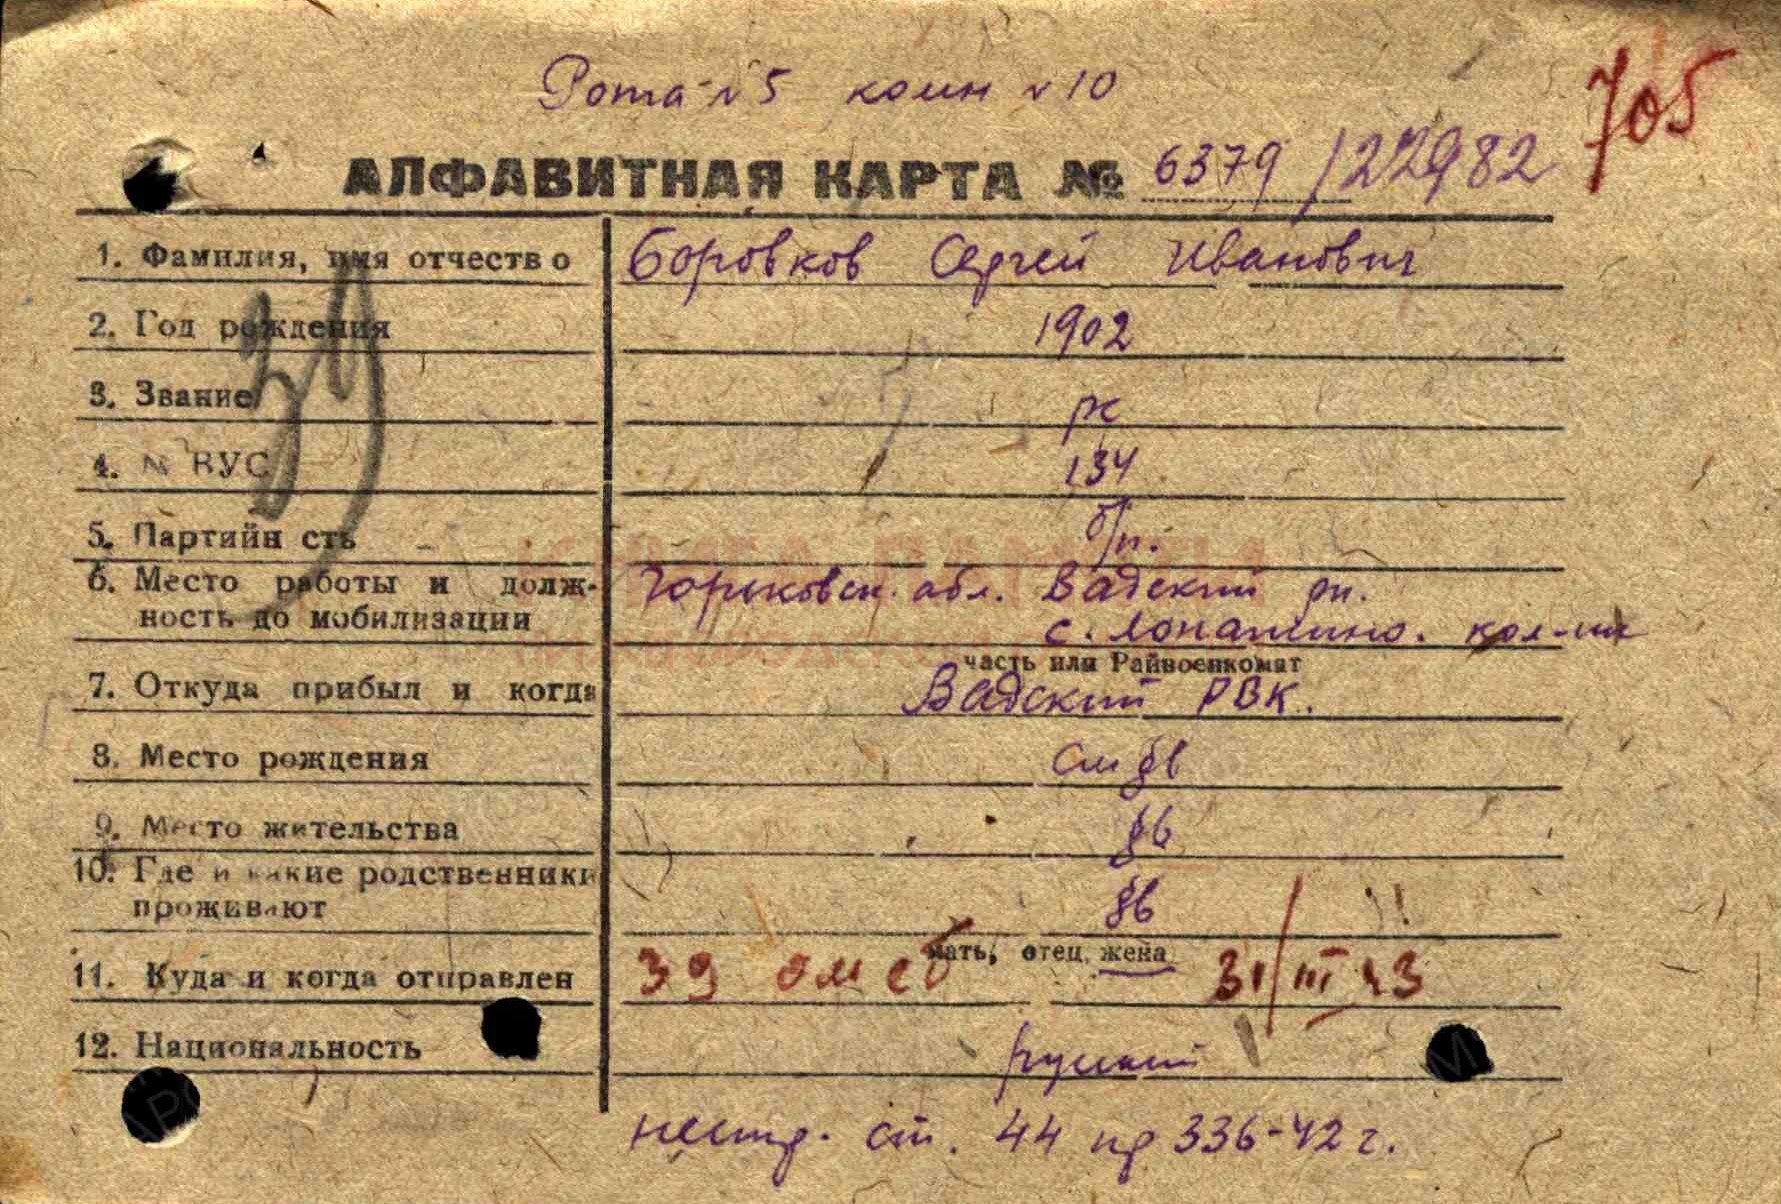 Рота №5 комн №10
705
АЛФАВИТНАЯ КАРТА № 6379/22982
1. Фамилия, имя отчество Боровков Сергей Иванович
2. Год рождения 1902
3. Звание рк
4. № ВУС 134
5. Партийн сть б/п.
6. Место работы и долж- Горьковск. обл. Вадский рн.
ность до мобилизации с. Лопатино. кол-ик
часть или Райвоенкомат
7. Откуда прибыл и когда Вадский РВК.
8. Место рождения См §6
9. Место жительства §6
10. Где и какие родственники
проживают §6
мать, отец, жена
11. Куда и когда отправлен 39 омсб 31/III 43
12. Национальность русский
39
нестр. ст. 44 пр 336-42 г.
КНИГА ПАМЯТИ